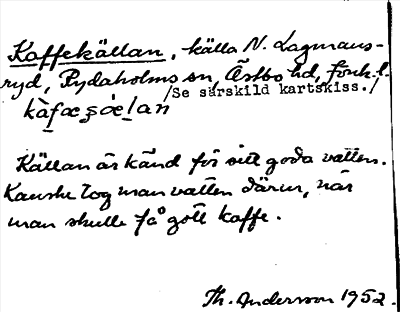 Kaffekällan, källa N. Lagmans-
ryd, Rydaholms sn, Östbo hd, Jönk. l.
/Se särskild kartskiss./
Källan är känd för sitt goda vatten.
Kanske tog man vatten därur, när
man skulle få gott kaffe.
Th. Andersson 1952.